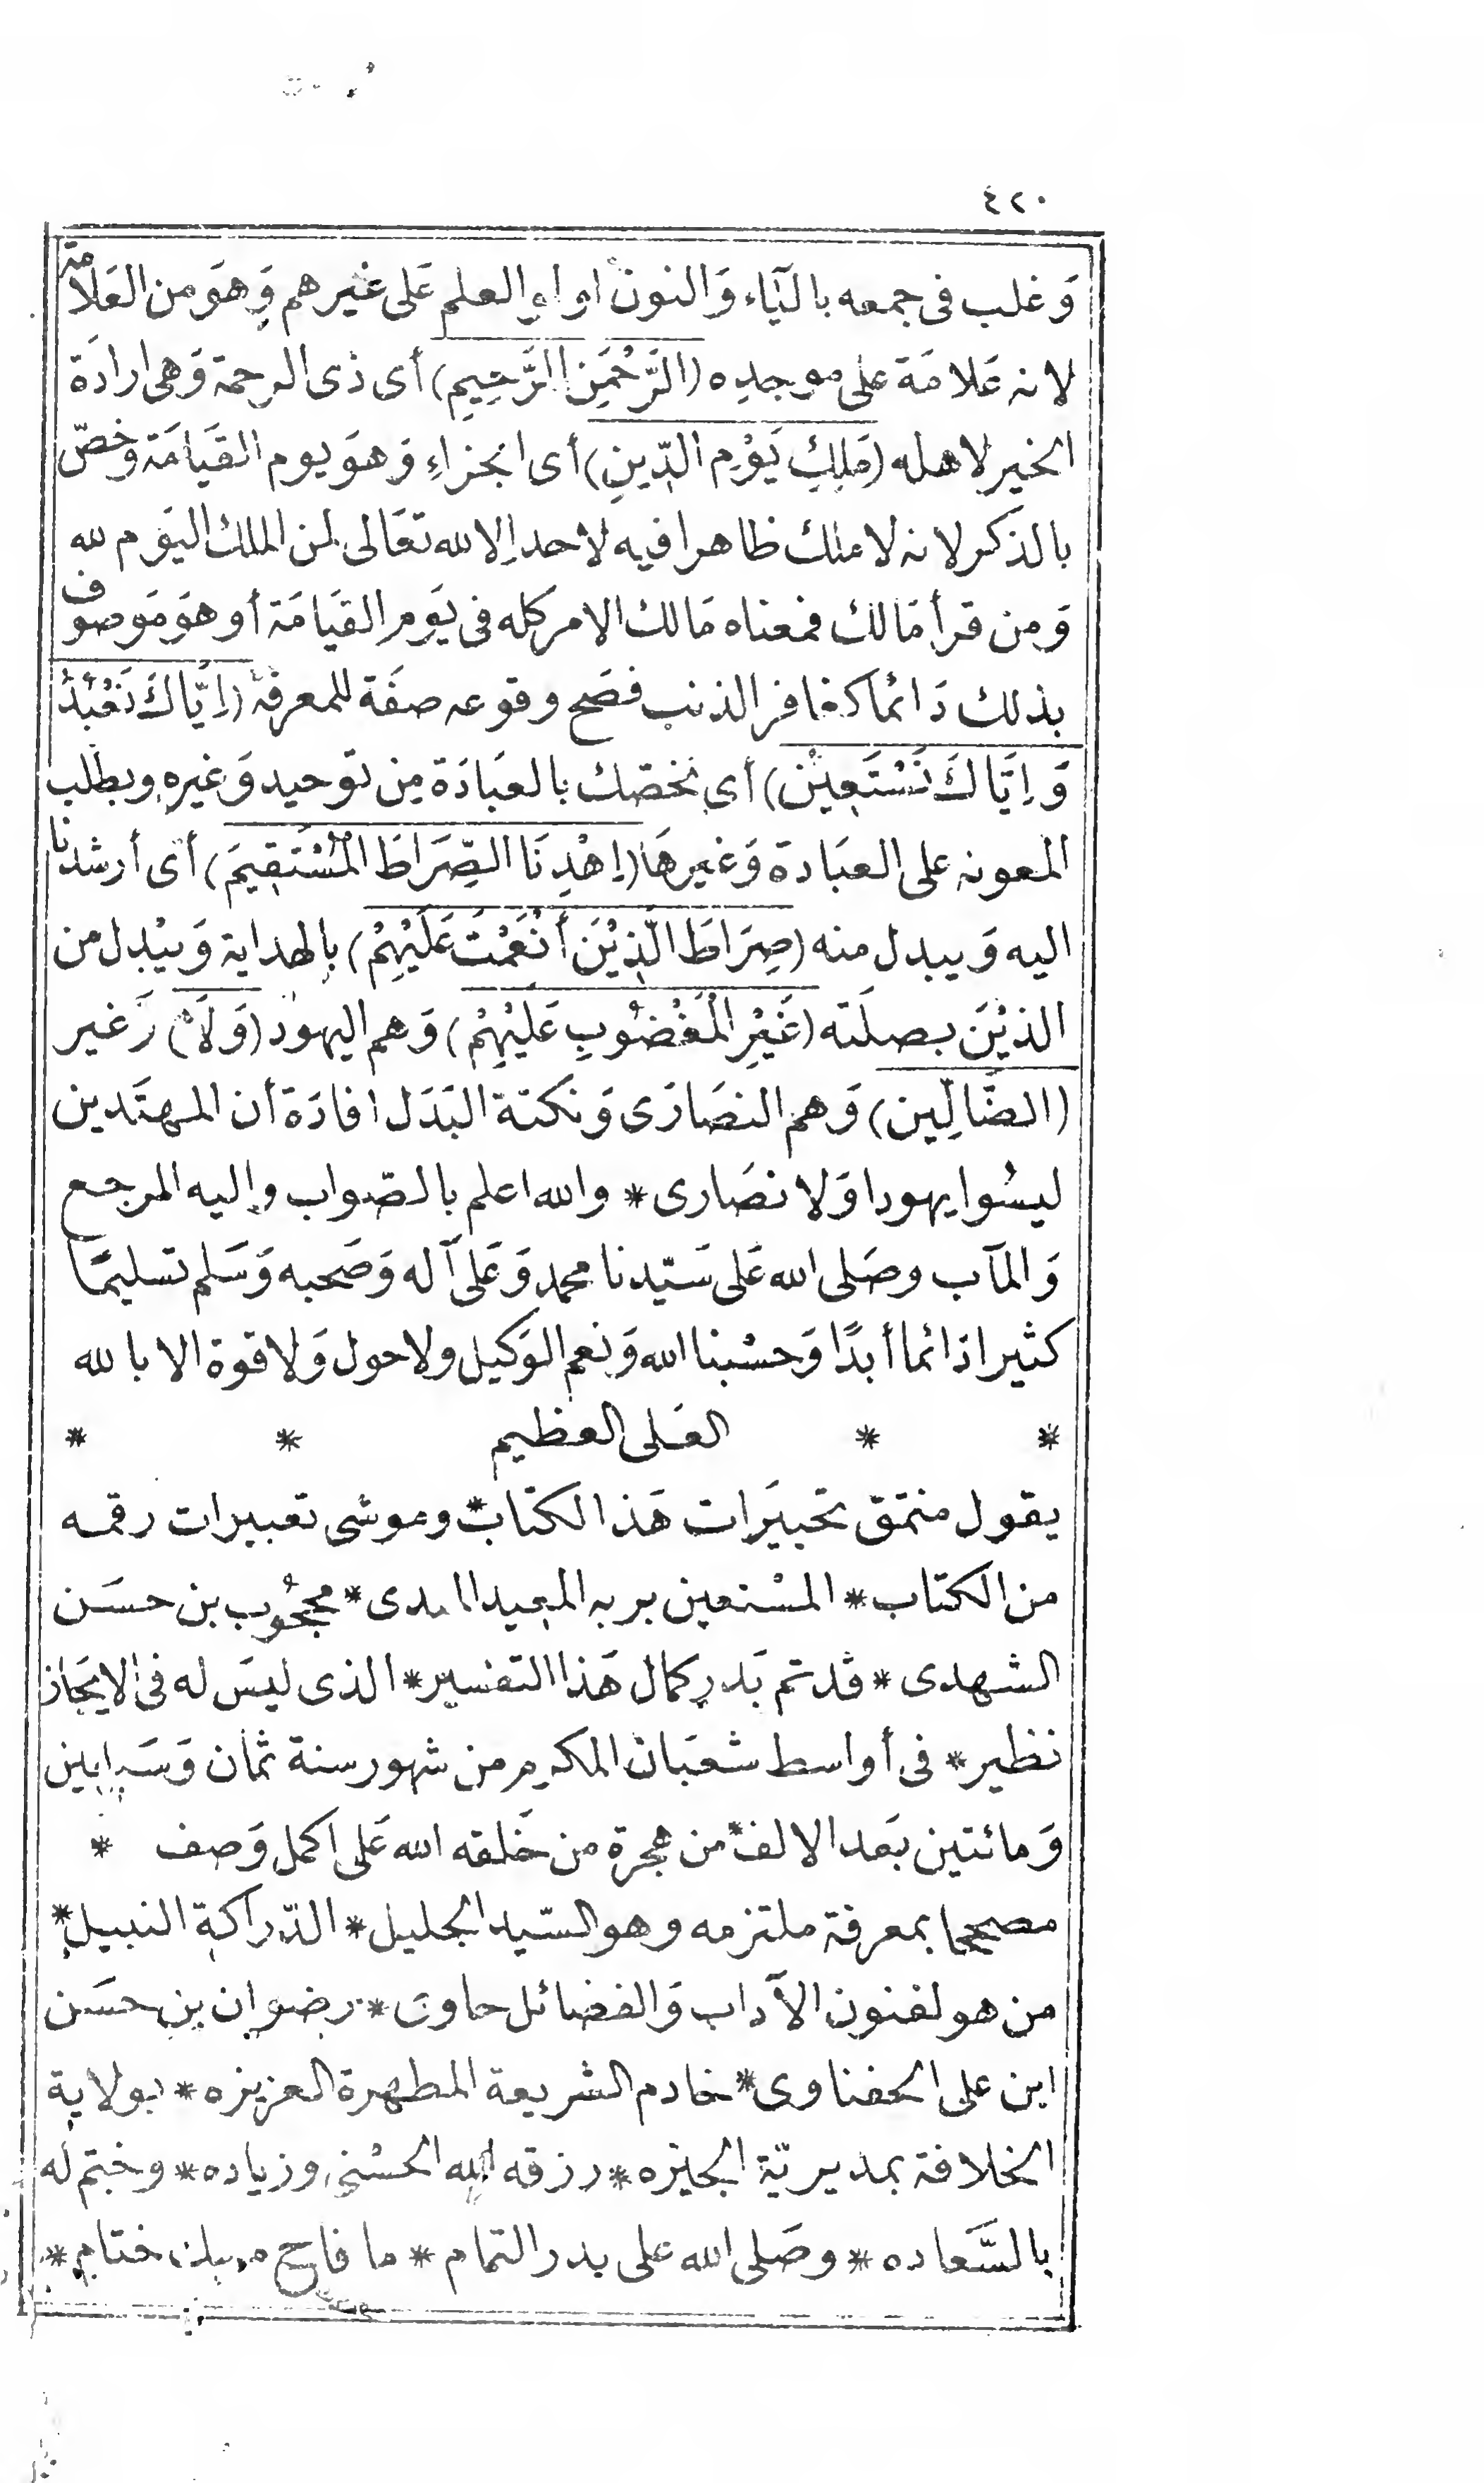 ٤٢٠
وَغلب فى جمعه بالیَاء وَالنون اولوالعلم عَلى غيرهم وَهوَ من العَلامة
لانه عَلامَة على موجده (الرَّحْمَنِ الرَّحِيمِ) أى ذى الرحمة وَهى ارادَة
الخير لاهله (مَلِكِ يَوْمِ الدِّينِ) أى الجزاءِ وَهوَ يوم القيَامَة وخصّ
بالذكر لانه لاملك ظاهرا فيه لاحد إلا لله تعَالى لمن الملك اليَوم لله
وَمن قرأ مَالك فمعناه مَالك الامر كله فى يَوم القيَامَة أو هوَ مَوصوف
بذلك دَائما كغافر الذنب فصَح وقوعه صفَة للمعرفة (إِيَّاكَ نَعْبُدُ
وَإِيَّاكَ نَسْتَعِيْن) أى نخصّك بالعبَادَة مِن توحيد وَغيره ويطلب
المعونه على العبَادة وَغيرهَا (إِهْدِنَا الصِّرَاطَ الْمُسْتَقِيمَ) أى أرشدنا
اليه وَيبدل منه (صِرَاطَ الَّذِيْنَ أَنْعَمْتَ عَلَيْهِمْ) بالهداية وَيبْدل من
الذيْنَ بصلَته (غَيْرِ الْمَغْضُوبِ عَلَيْهِمْ) وَهم اليهود (وَلَا) وَغير
(الضَّالِّين) وَهم النصَارَى وَنكتة البَدَل افادَة أن المهتَدين
ليسُوا يهودا وَلا نصَارى * والله اعلم بالصّواب وإليه المرجع
وَالمآب وصَلى الله عَلى سَيّدنا محمد وَعَلى آله وَصَحبه وَسَلم تسليمًا
كثيرا دَائما أبدًا وَحسْبنا الله وَنعم الوَكيل ولاحول وَلاقوة الا بالله
* * العَلى العظيم * *
يقول منمق تحبيَرات هَذا الكتاب * وموشى تعبيرات رقمه
من الكتاب * المسْتعين بربه المعيد المبدى * محجُوب بن حسَن
الشهدى * قد تم بَدر كمال هَذا التفسير * الذى ليسَ له فى الايجَاز
نظير * فى أواسط شعبَان المكرم من شهور سنة ثمان وَسَبعين
وَمائتين بَعد الالف * من هجرة من خَلقه الله عَلى اكمل وَصف *
مصححا بمعرفة ملتزمه وهو السّيد الجليل * الدّراكة النبيل *
من هو لفنون الآداب وَالفضائل حاوى * رضوان بن حسَن
ابن على الحفناوى * خادم الشريعة المطهرة العزيزه * بولاية
الخلافة بمديريّة الجيزه * رزقه الله الحسْنى وزياده * وختم له
بالسَّعاده * وصَلى الله على بدر التمام * ما فاح مسك ختام *